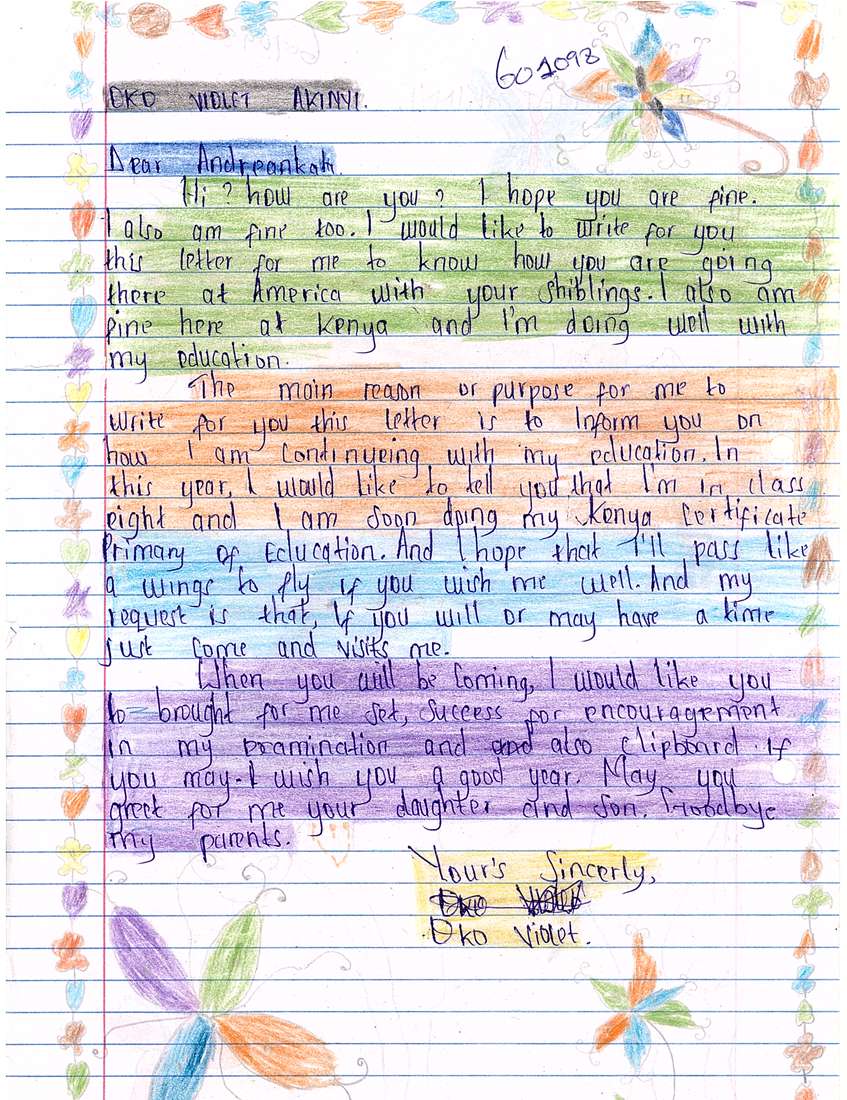 601098
OKO VIOLET AKINYI.
Dear Andreankah.
Hi? how are you? I hope you are fine.
I also am fine too. I would like to write for you
this letter for me to know how you are going
there at America with your shiblings. I also am
fine here at Kenya and I'm doing well with
my education.
The main reason or purpose for me to
write for you this letter is to Inform you on
how I am Continueing with my education. In
this year, I would like to tell you that I'm in class
eight and I am soon doing my Kenya Certificate
Primary of Education. And I hope that I'll pass like
a wings to fly if you wish me well. And my
request is that, If you will or may have a time
just come and visits me.
When you will be Coming, I would like you
to brought for me Set, Success for encouragement
in my examination and and also clipboard. If
you may. I wish you a good year. May you
greet for me your daughter and son. Goodbye
my parents.
Your's Sincerly,
Oko Violet
Oko Violet.